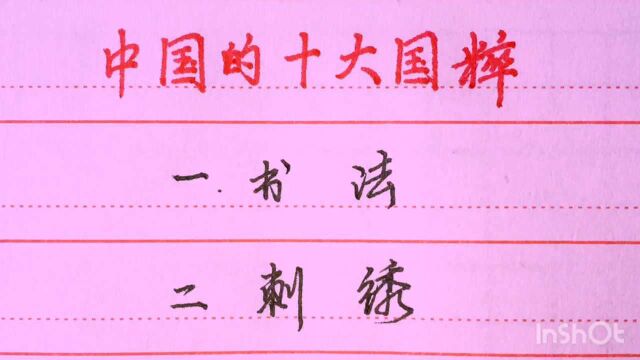 中国的十大国粹
一.书法
二刺绣
InShOt